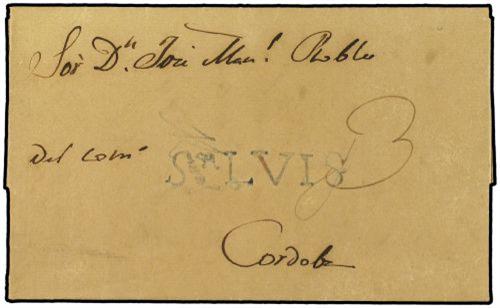 Sór Dn. José Manl. Robles
Del comò
Sn LVIS 3
Cordoba